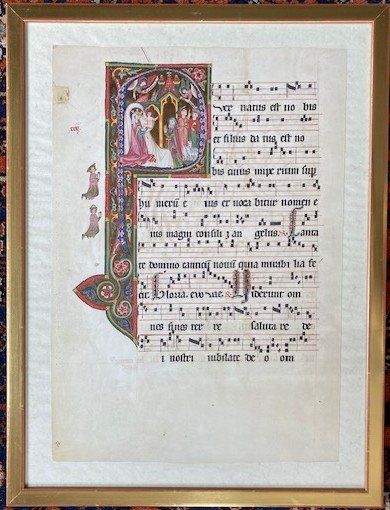 uer natus est no bis
et filius da tus est no
bis cuius impe rium sup
hu merum e ius et voca bitur nomen e
ius magni consili j an gelus. Canta
te domino canticū novū quia mirabi lia fe
cit. Gloria. evovae. Viderunt om
nes fines ter re saluta re de
i nostri iubilate de o om